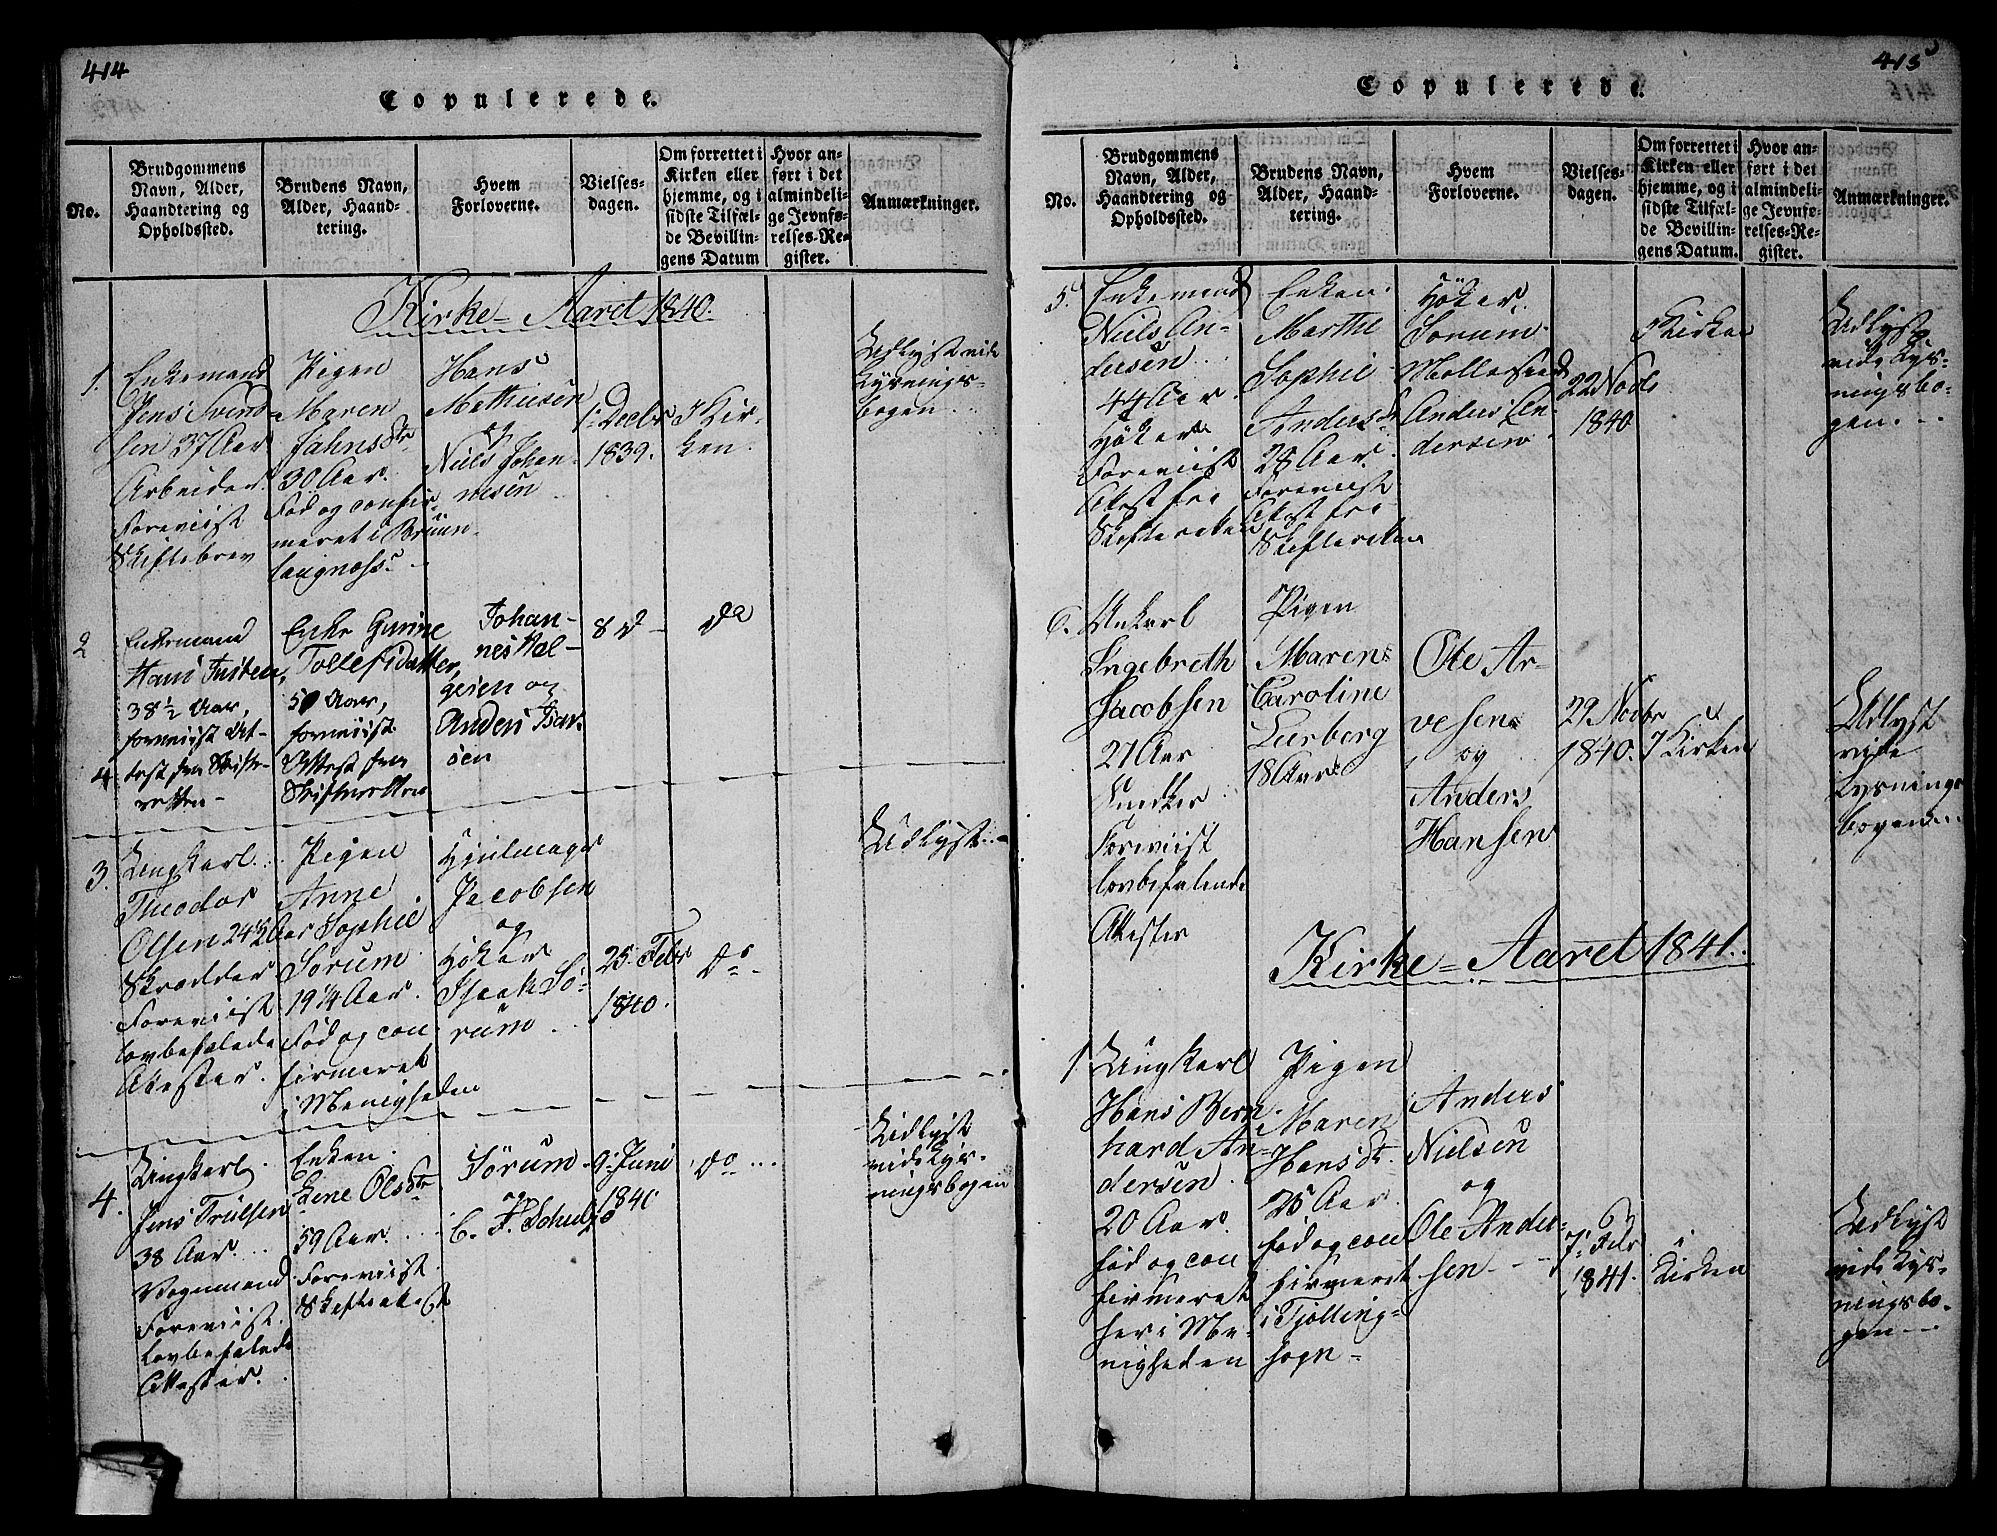 414
Copulerede.
No.
Brudgommens
Navn, Alder,
Haandtering og
Opholdssted.
Brudens Navn,
Alder, Haand-
tering.
Hvem
Forloverne.
Vielses-
dagen.
Om forrettet i
Kirken eller
hjemme, og i
sidste Tilfæl-
de Bevillin-
gens Datum
Hvor an-
ført i det
almindeli-
ge Jevnfø-
relses-Re-
gister.
Anmærkninger.
Kirke-Aaret 1840.
1.
Enkemand
Jens Svend-
sen 37 Aar
Arbeider
Foreviist
Skiftebrev
Pigen
Maren
Jahnsdtr
30 Aar.
Fød og confir
meret i Bruun
laugnæss.
Hans
Mathiesen
og
Niels Johan-
nesen
1. Decbr
1839.
I Kir-
ken.
Udlyst vide
Lysnings-
bogen
2
Enkemand
Hans
38½ Aar,
foreviist At-
test fra Skifte-
retten-
Enke Gurine
Tollefsdatter,
Aar,
foreviist
Attest fra
Skifteretten
Johan-
nes
og
Anders
sen
8 D-
Do
4
3.
Ungkarl
Theodor
Olsen 24½ Aar
Skrædder
Foreviist
lovbefalede
Attester.
Pigen
Anne
Sophie
Sørum
19¼ Aar.
Fød og con
firmeret
i Menigheden
Hjulmager
Jacobsen
og
Høker
Isaak Sø-
rum
25. Febr
1840.
Do
Udlyst
4.
Ungkarl
Jens Truelsen
38 Aar
Vognmand
Foreviist
lovbefalede
Attester.
Enken
Lene Olsdtr
59 Aar
Foreviist
Skifteattest
Sørum
og
C. F. Schulz
9. Juni
1840
Do
Udlyst
vide Lys-
ningsbogen
415
Copulerede.
No.
Brudgommens
Navn, Alder,
Haandtering og
Opholdssted.
Brudens Navn,
Alder, Haand-
tering.
Hvem
Forloverne.
Vielses-
dagen.
Om forrettet i
Kirken eller
hjemme, og i
sidste Tilfæl-
de Bevillin-
gens Datum.
Hvor an-
ført i det
almindeli-
ge Jevnfø-
relses-Re-
gister.
Anmærkninger.
5.
Enkemand
Niels An-
dersen
44 Aar
Høker
Foreviist
Attest fra
Skifteretten
Enken
Marthe
Sophie
Andersdtr
28 Aar.
Foreviist
Attest fra
Skifteretten
Høker
Sorum
Anders An-
dersen
22 Novb
1840
I Kirken
Udlyst
vide Lys-
ningsbo-
gen.
6.
Unkarl
Ingebreth
Jacobsen
21 Aar
Snedker
Foreviist
lovbefalende
Attester
Pigen
Maren
Caroline
Lerberg
18 Aar
Ole Ar-
vesen
og
Anders
Hansen
29 Novbr
1840.
I Kirken
Udlyst
vide
Lysnings
bogen
Kirke-Aaret 1841.
1
Ungkarl
Hans Bern
hard An-
dersen
20 Aar
fød og con
firmeret
her i Me-
nigheden
Pigen
Maren
Hansdtr
25 Aar
fød og con
firmeret
i Tjølling-
sogn-
Anders
Nielsen
og
Ole Ander-
sen
7. Febr
1841.
i
Kirken
Udlyst
vide Lys-
ningsbo-
gen